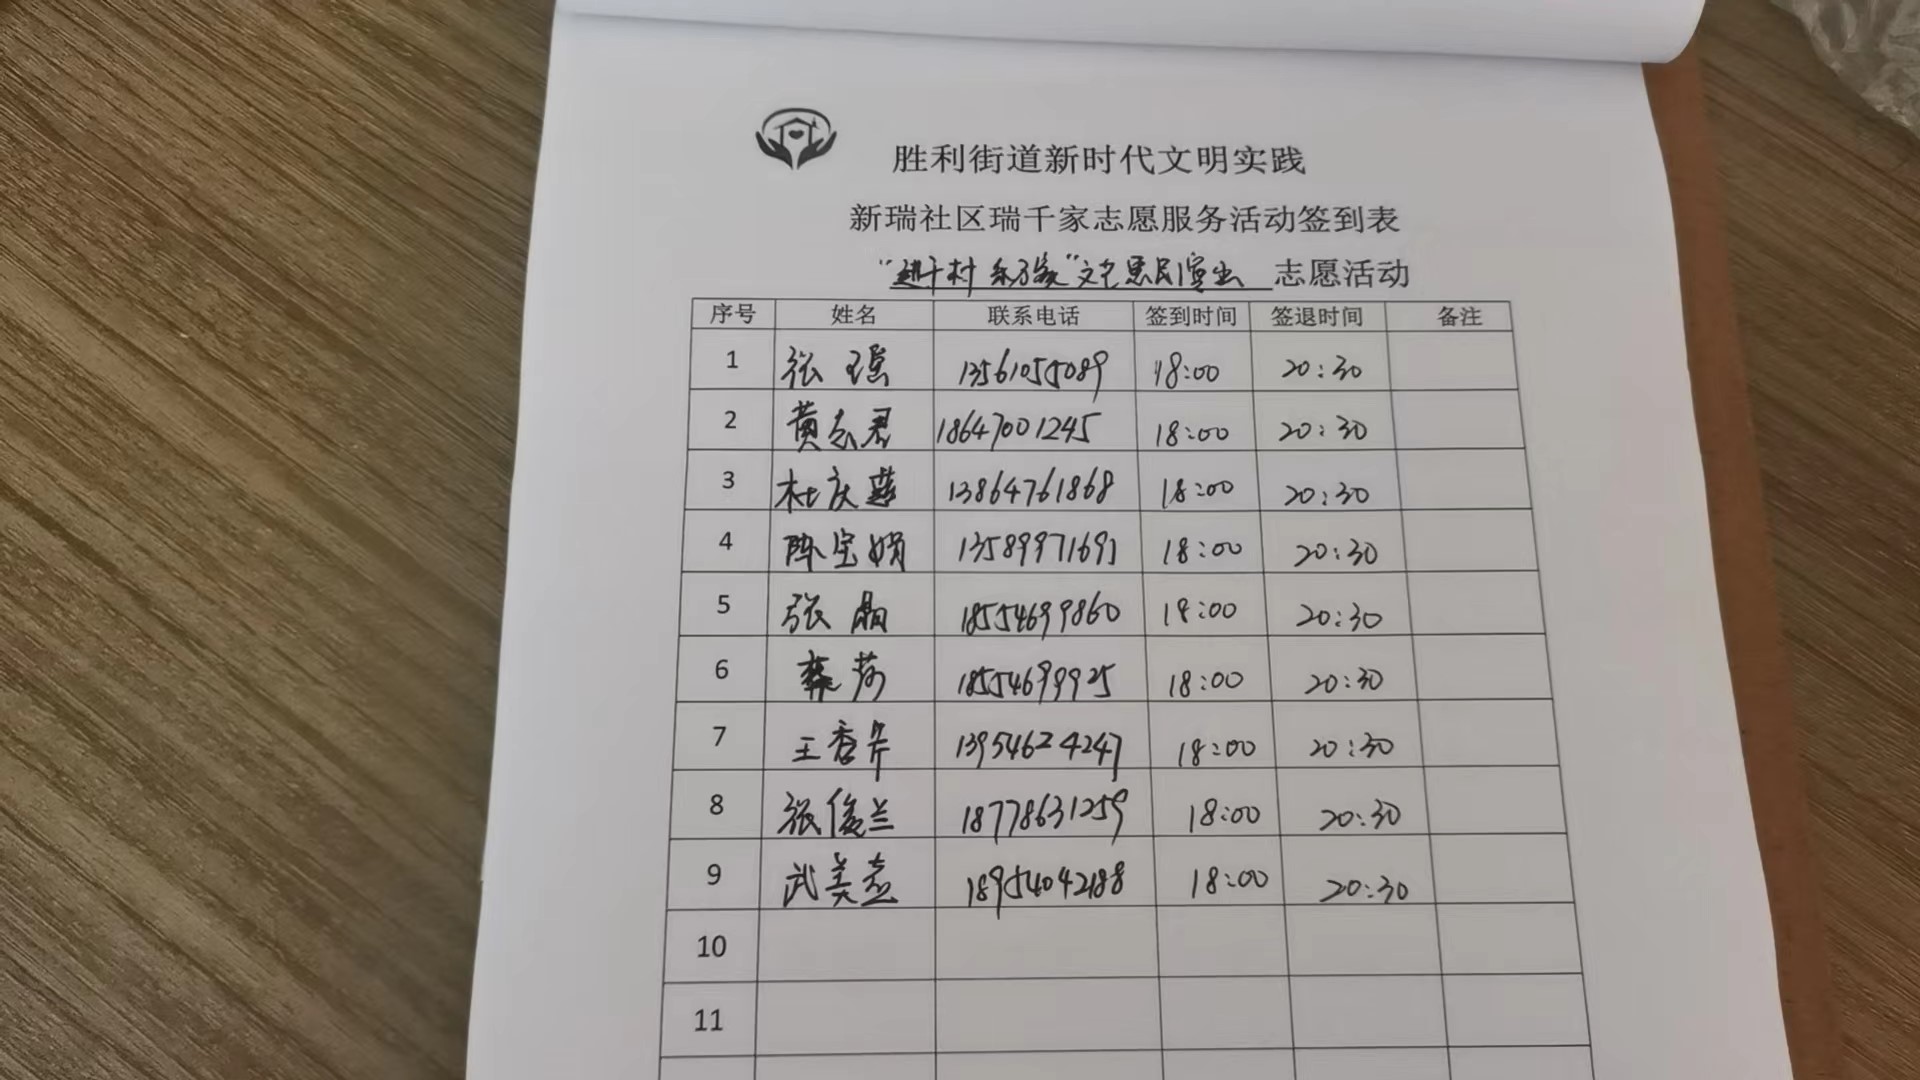 胜利街道新时代文明实践
新瑞社区瑞千家志愿服务活动签到表
“进千村 乐万家”文艺惠民演出 志愿活动
序号 姓名 联系电话 签到时间 签退时间 备注
1 张瑶 13561055089 18:00 20:30
2 黄志君 18647001245 18:00 20:30
3 杜庆燕 13864761868 18:00 20:30
4 陈宝娟 13589971691 18:00 20:30
5 张晶 18554699860 18:00 20:30
6 莎 18554699925 18:00 20:30
7 王香芹 13954624247 18:00 20:30
8 张俊兰 18778631259 18:00 20:30
9 武美 18954042188 18:00 20:30
10
11